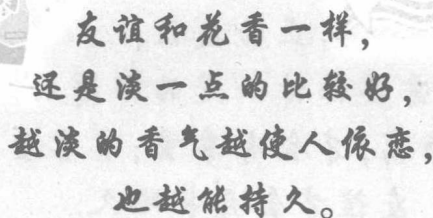 友谊和花香一样，
还是淡一点的比较好，
越淡的香气越使人依恋，
也越能持久。